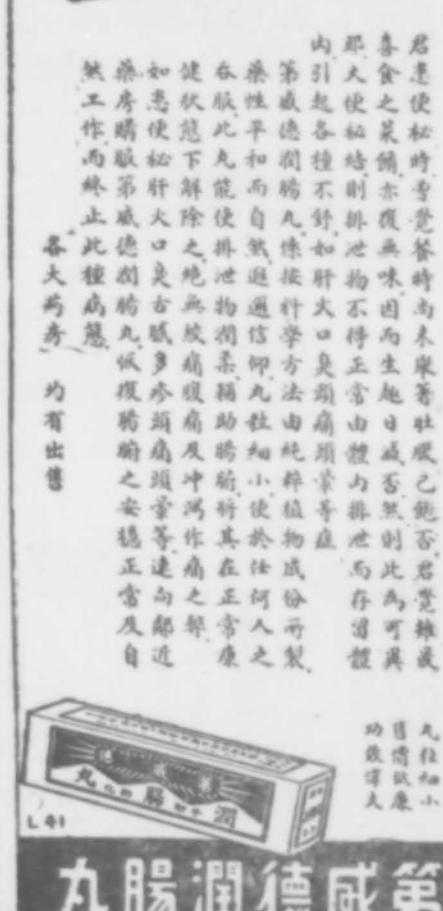 君患便秘時曾覺餐時尚未舉箸肚覺已飽否君覺雖最
喜食之菜餚亦復無味因而生趣日減否然則此為可異
耶大便秘結則排泄物不得正常由體內排泄而存留體
內引起各種不舒如肝火口臭頭痛頭暈等症
第威德潤腸丸係按科學方法由純粹植物成份所製
藥性平和而自然遐邇信仰丸粒細小便於任何人之
吞服此丸能使排泄物潤柔補助腸腑將其在正常康
健狀態下解除之絕無絞痛腹痛及沖瀉作痛之弊
如患便秘肝火口臭舌膩多疹頭痛頭暈等速向鄰近
藥房購服第威德潤腸丸恢復腸腑之安穩正常及自
然工作而終止此種病態
各大药房 均有出售
丸粒細小
售價低廉
功效偉大
第威德
潤腸丸
L 41
第威德潤腸丸